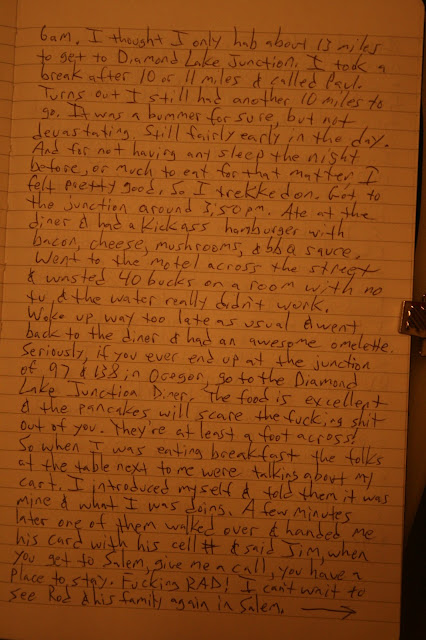 6am. I thought I only had about 13 miles
to get to Diamond Lake Junction. I took a
break after 10 or 11 miles & called Paul.
Turns out I still had another 10 miles to
go. It was a bummer for sure, but not
devastating. Still fairly early in the day.
And for not having any sleep the night
before, or much to eat for that matter I
felt pretty good. So I trekked on. Got to
the junction around 3:50pm. Ate at the
diner & had a kickass hamburger with
bacon, cheese, mushrooms, & bbq sauce.
Went to the motel across the street
& wasted 40 bucks on a room with no
tv & the water really didn't work.
Woke up way too late as usual & went
back to the diner & had an awesome omelette.
Seriously, if you ever end up at the junction
of 97 & 138 in Oregon, go to the Diamond
Lake Junction Diner. The food is excellent
& the pancakes will scare the fucking shit
out of you. They're at least a foot across!
So when I was eating breakfast the folks
at the table next to me were talking about my
cart. I introduced myself & told them it was
mine & what I was doing. A few minutes
later one of them walked over & handed me
his card with his cell # & said Jim, when
you get to Salem, give me a call, you have a
place to stay. Fucking RAD! I can't wait to
see Rod & his family again in Salem. →